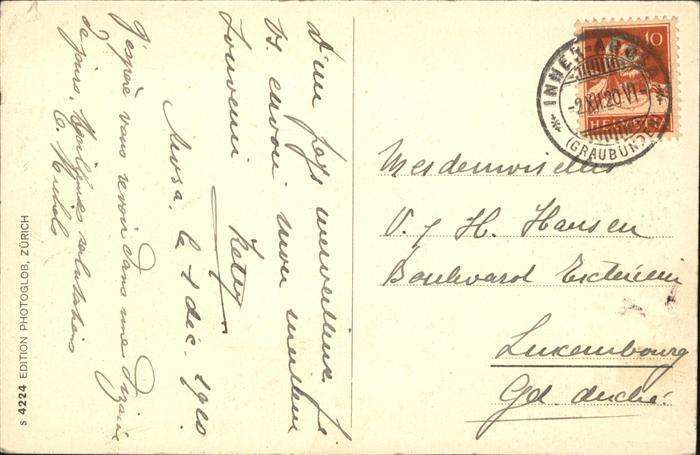 D'un pays merveilleux je
vs. envoie mon meilleur
souvenir
Ketty
Arosa, le 1 déc. 1920.
J'espère vous revoir dans une dizaine
de jours. Meilleures salutations
C. Michels
S 4224 EDITION PHOTOGLOB, ZÜRICH
10
HELVETIA
INNER-AROSA
-2.XII.20.VI-
(GRAUBÜND.)
V. & H. Hansen
Boulevard Extérieur
Luxembourg
Gd. duché.